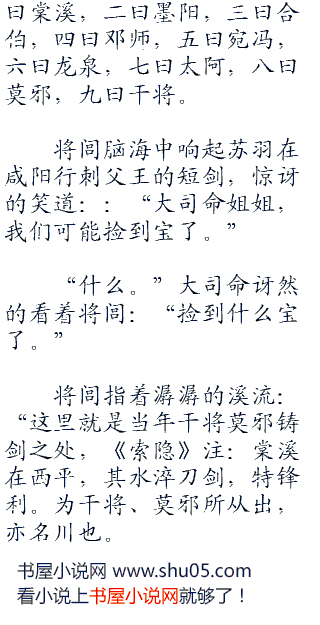 曰棠溪，二曰墨阳，三曰合
伯，四曰邓师，五曰宛冯，
六曰龙泉，七曰太阿，八曰
莫邪，九曰干将。
将闾脑海中响起苏羽在
咸阳行刺父王的短剑，惊讶
的笑道：：“大司命姐姐，
我们可能捡到宝了。”
“什么。”大司命讶然
的看着将闾：“捡到什么宝
了。”
将闾指着潺潺的溪流：
“这里就是当年干将莫邪铸
剑之处，《索隐》注：棠溪
在西平，其水淬刀剑，特锋
利。为干将、莫邪所从出，
亦名川也。
书屋小说网 www.shu05.com
看小说上书屋小说网就够了！